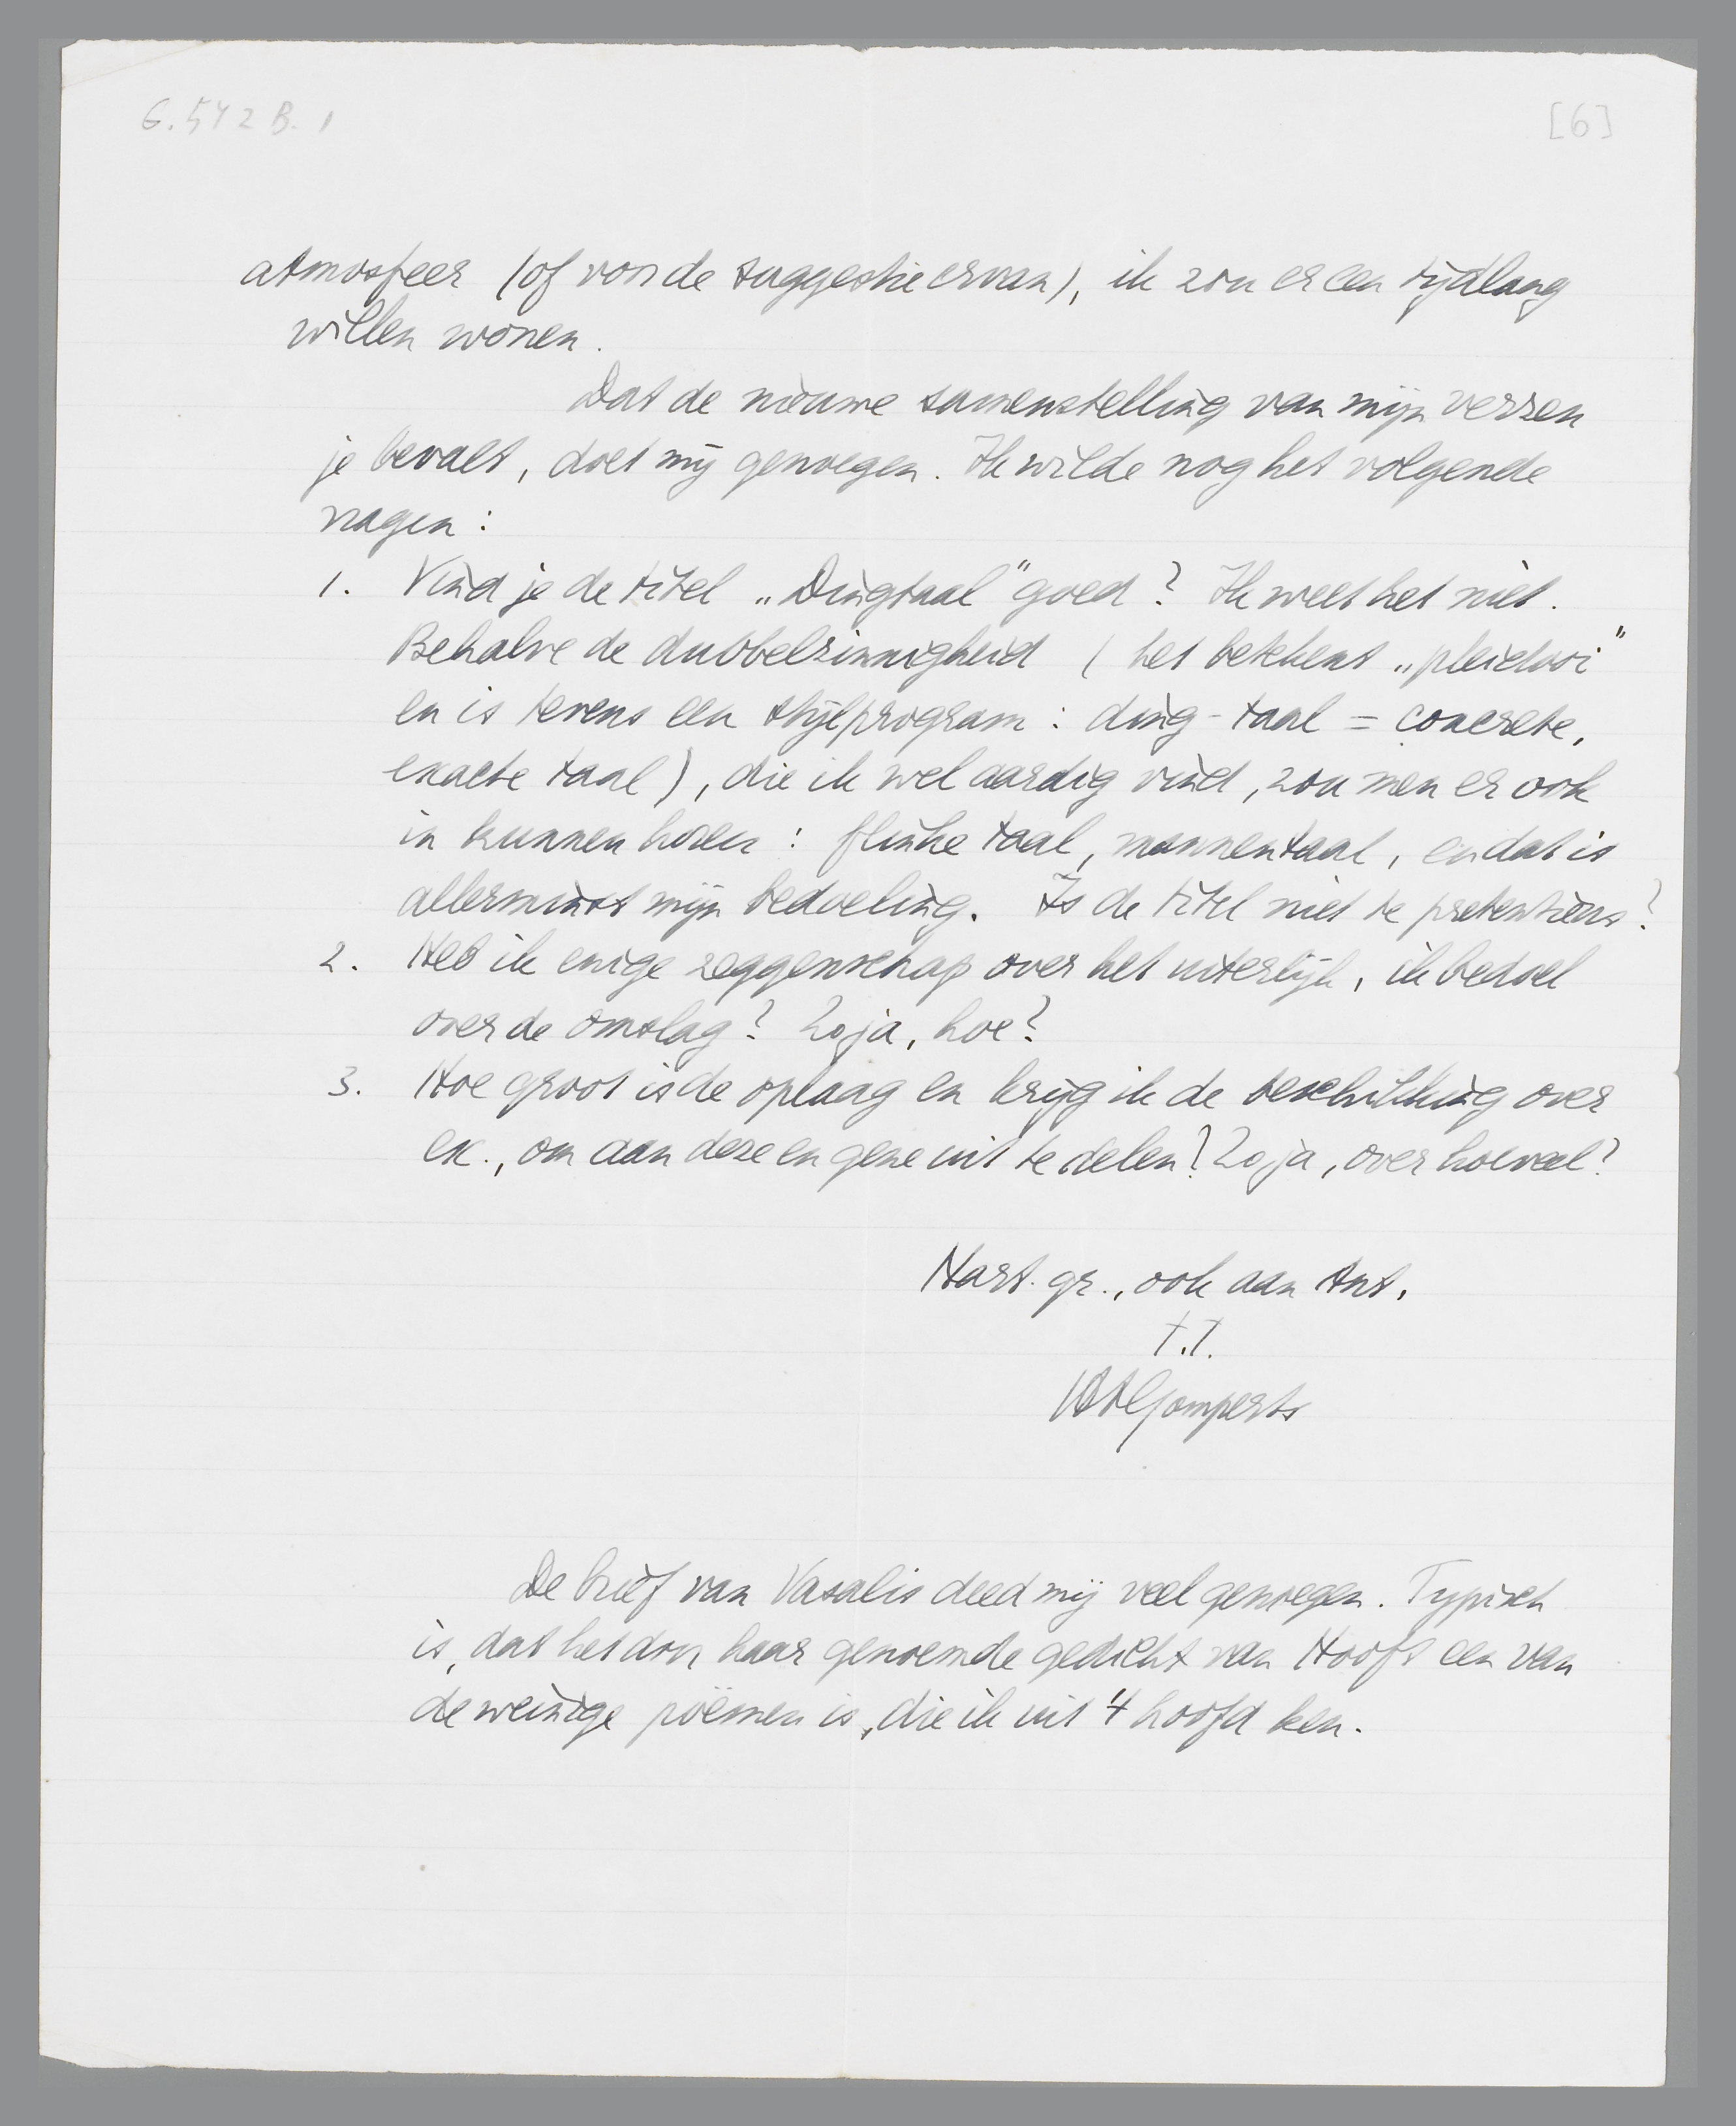 G.542 B. 1
[6]
atmosfeer (of van de suggestie ervan), ik zou er een tijdlang
willen wonen.
Dat de nieuwe samenstelling van mijn verzen
je bevalt, doet mij genoegen. Ik wilde nog het volgende
vragen:
1. Vind je de titel „Dingtaal" goed? Ik weet het niet.
Behalve de dubbelzinnigheid (het betekent „pleidooi"
en is tevens een stijlprogram: ding-taal = concrete,
exacte taal), die ik wel aardig vind, zou men er ook
in kunnen horen: flinke taal, mannentaal, en dat is
allerminst mijn bedoeling. Is de titel niet te pretentieus?
2. Heb ik enige zeggenschap over het uiterlijk, ik bedoel
over de omslag? Zo ja, hoe?
3. Hoe groot is de oplaag en krijg ik de beschikking over
ex., om aan deze en gene uit te delen? Zo ja, over hoeveel?
Hart. gr., ook aan Ant.
t.t.
HAGomperts
De brief van Vasalis deed mij veel genoegen. Typisch
is, dat het door haar genoemde gedicht van Hooft een van
de weinige poëmen is, die ik uit 't hoofd ken.